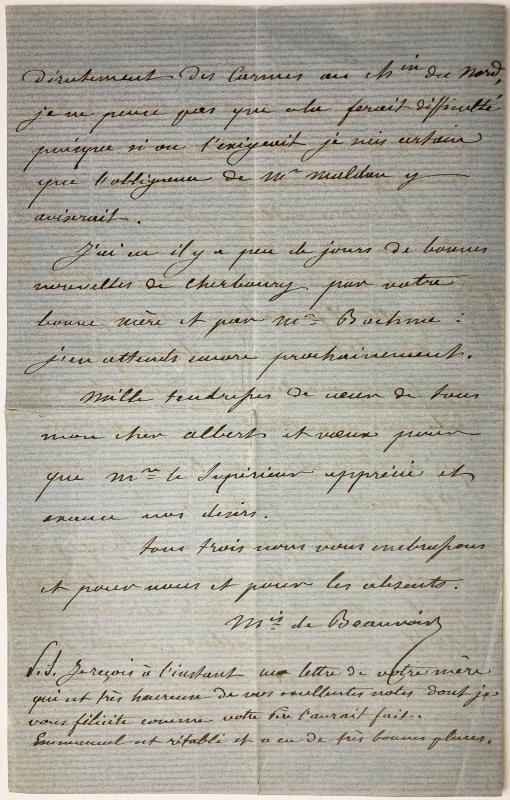 directement des Carmes au Ch^in du Nord,
je ne pense pas que cela ferait difficulté
puisque si on l'exigeait je suis certain
que l'obligeance de M^r Maldan y
aviserait.
J'ai eu il y a peu de jours de bonnes
nouvelles de Cherbourg par votre
bonne mère et par M^me Boehme :
j'en attends encore prochainement.
Mille tendresses de cœur de tous
mon cher Albert et vœux pour
que M^r le Supérieur apprécie et
exauce nos désirs.
Tous trois nous vous embrassons
et pour nous et pour les absents.
M^is de Beauvoir
P.S. Je reçois à l'instant une lettre de votre mère
qui est très heureuse de vos excellentes notes dont je
vous félicite comme votre Père l'aurait fait.
Emmanuel est rétabli et a eu de très bonnes places.